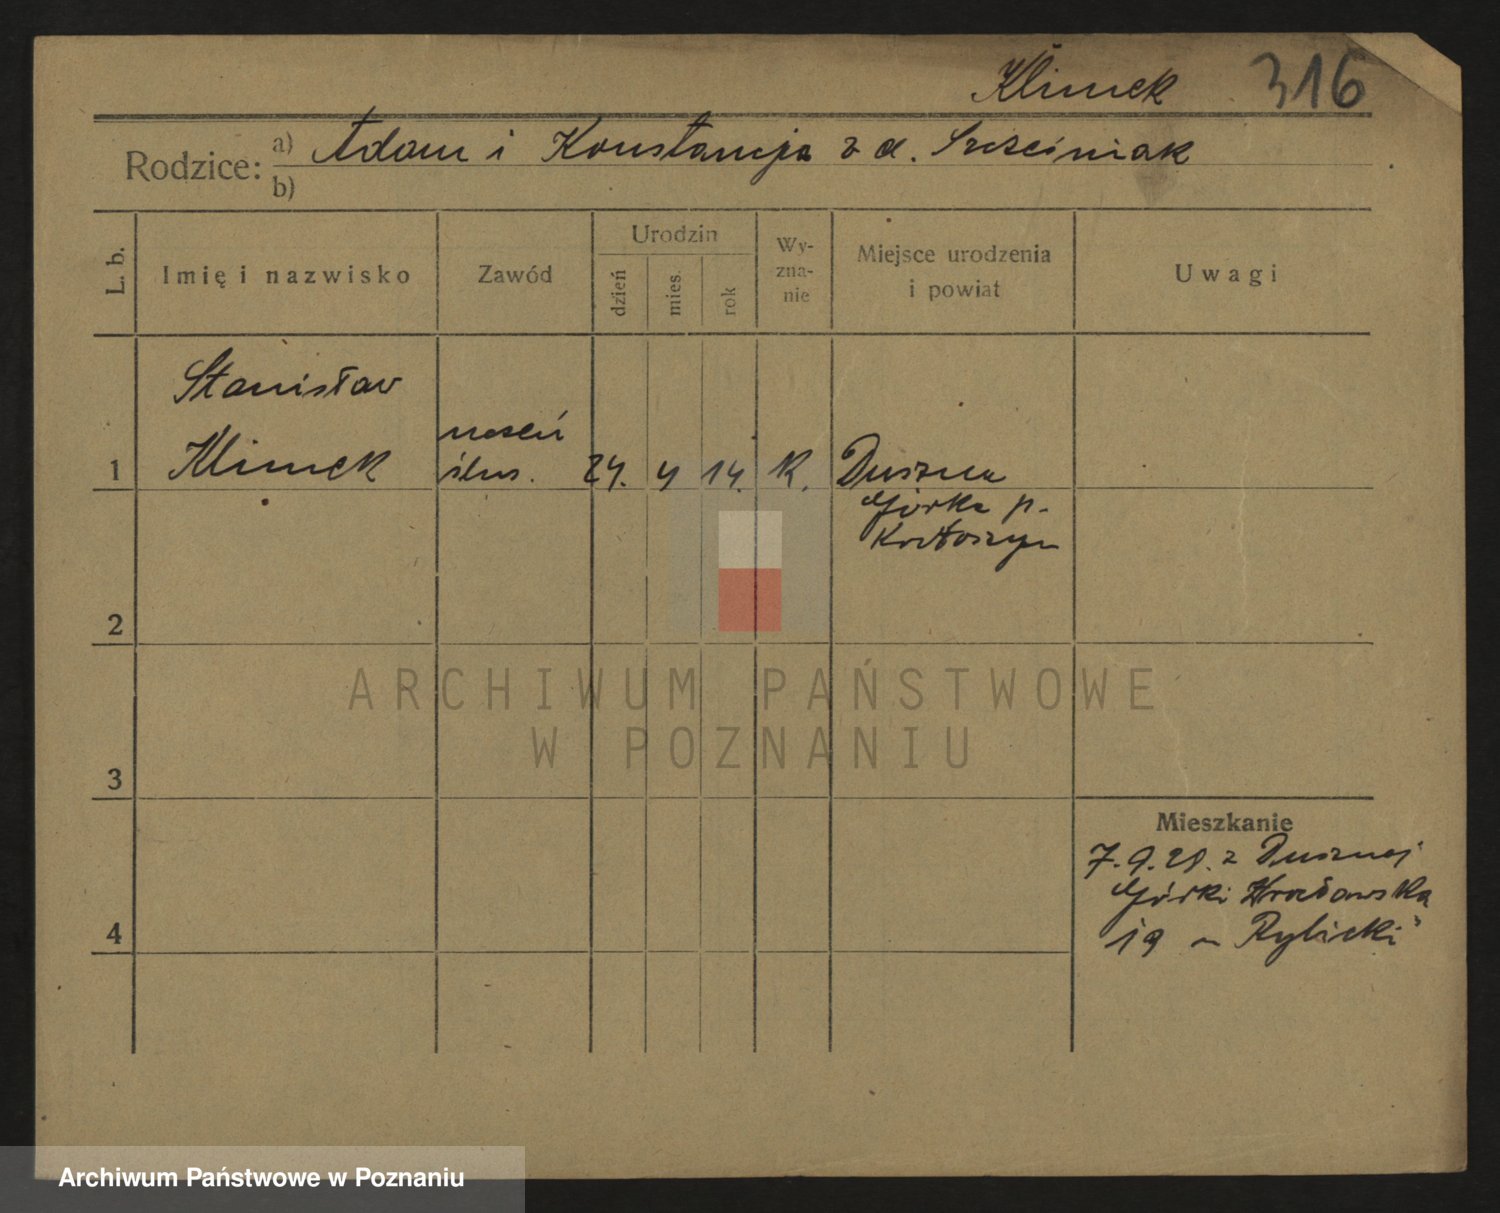 Klimek 316
Rodzice: a) Adam i Konstancja z d. Szcześniak
b)
L. b. Imię i nazwisko Zawód Urodzin dzień mies. rok Wy-zna-nie Miejsce urodzenia i powiat Uwagi
Stanisław
uczeń
1 Klimek ślus. 24. 4 14. K. Duszna
Górka p.
Krotoszyn
2
3
4
Mieszkanie
7.9.28. z Dusznej
Górki Wrocławska
19 Rybicki
ARCHIWUM PAŃSTWOWE
W POZNANIU
Archiwum Państwowe w Poznaniu